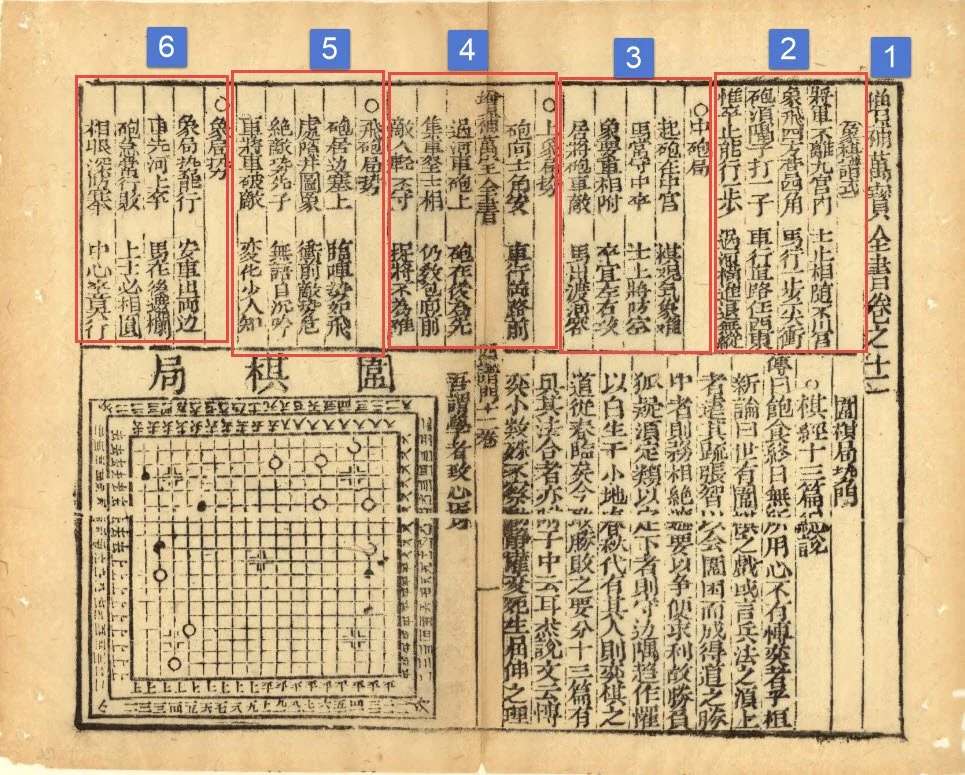 1
2
3
4
5
6
增補萬寶全書卷之十二
象棋譜式
將軍不離九宮內 士止相隨不出宮
象飛四方營四角 馬行一步尖衝
砲須隔子打一子 車行直路任西東
惟卒止能行一步 過河橫進退無蹤
○中砲局
起砲在中宮 棋觀氣象雄
馬常守中卒 士上將防空
象要車相附 卒宜左右攻
居將砲車敵 馬出渡河
○士象局勢
砲向士角安 車行兩路前
過河車砲上 砲在後為先
集車坐士相 仍教包前
敵人輕不守 捉將不為難
增補萬寶全書
○飛砲局勢
砲居邊塞上 臨陣勢如飛
圖象 衝前敵勢危
絕敵安死子 無語自沉吟
車將車破敵 變化少人知
○象局勢
象局勢能行 安車出兩边
車先河上卒 馬在後遮欄
砲急常行敗 士主必相圓
相眼深防某 中心卒莫行
圍棋局勢門
○棋經十三篇總說
傳曰飽食終日無所用心不有博奕者乎桓
新論曰世有圍棋之戲或言兵法之類上
者遠其疏張置以會圍因而成得道之勝
中者則務相絕遮要以爭便求利故勝負
狐疑須定數以定下者則守边隅趨作罹
以自生于小地春秋代有其人則奕棋之
道從來矣今取勝敗之要分十三篇有
與其法合者亦附于中云耳說文云博
奕小數動靜權変死生屈伸之理
吾謂學者致心焉
十二卷
圍棋局